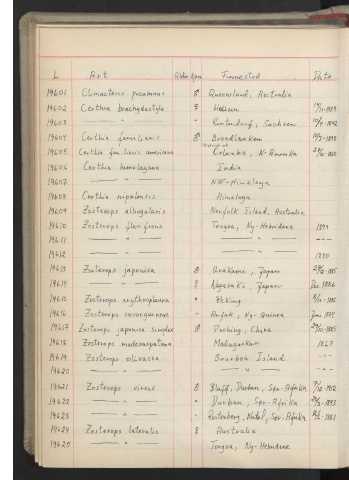 L Art Alder Kjøn Finnested Dato
19601 Climacteris picumnus ♂ Queensland, Australia
19602 Certhia brachydactyla ♀ Hessen
19603 — " — Sachsen
19604 Certhia familiaris ♂
19605 Certhia familiaris americana Columbia, N-Amerika
19606 Certhia himalayana India
19607 — " — NW-Himalaya
19608 Certhia nipalensis Himalaya
19609 Zosterops albogularis Norfolk Island, Australia
19610 Zosterops flavifrons Tongoa, Ny-Hebridene 1899
19611 — " — — " —
19612 — " — — " — 1890
19613 Zosterops japonica ♂ Urakami, Japan
19614 — " — ♀ Nagasaki, Japan Dec. 1886
19615 Zosterops erythropleura " Peking
19616 Zosterops novaeguineae - Arfak, Ny-Guinea
19617 Zosterops japonica simplex ♂ China
19618 Zosterops maderaspatana Madagaskar
19619 Zosterops olivacea Bourbon Island
19620 — " — — " —
19621 Zosterops virens ♂ Bluff, Durban, Sør-Afrika
19622 — " — " Durban, Sør-Afrika
19623 — " — Natal, Sør-Afrika
19624 Zosterops lateralis ♀ Australia
19625 — " — Tongoa, Ny-Hebridene